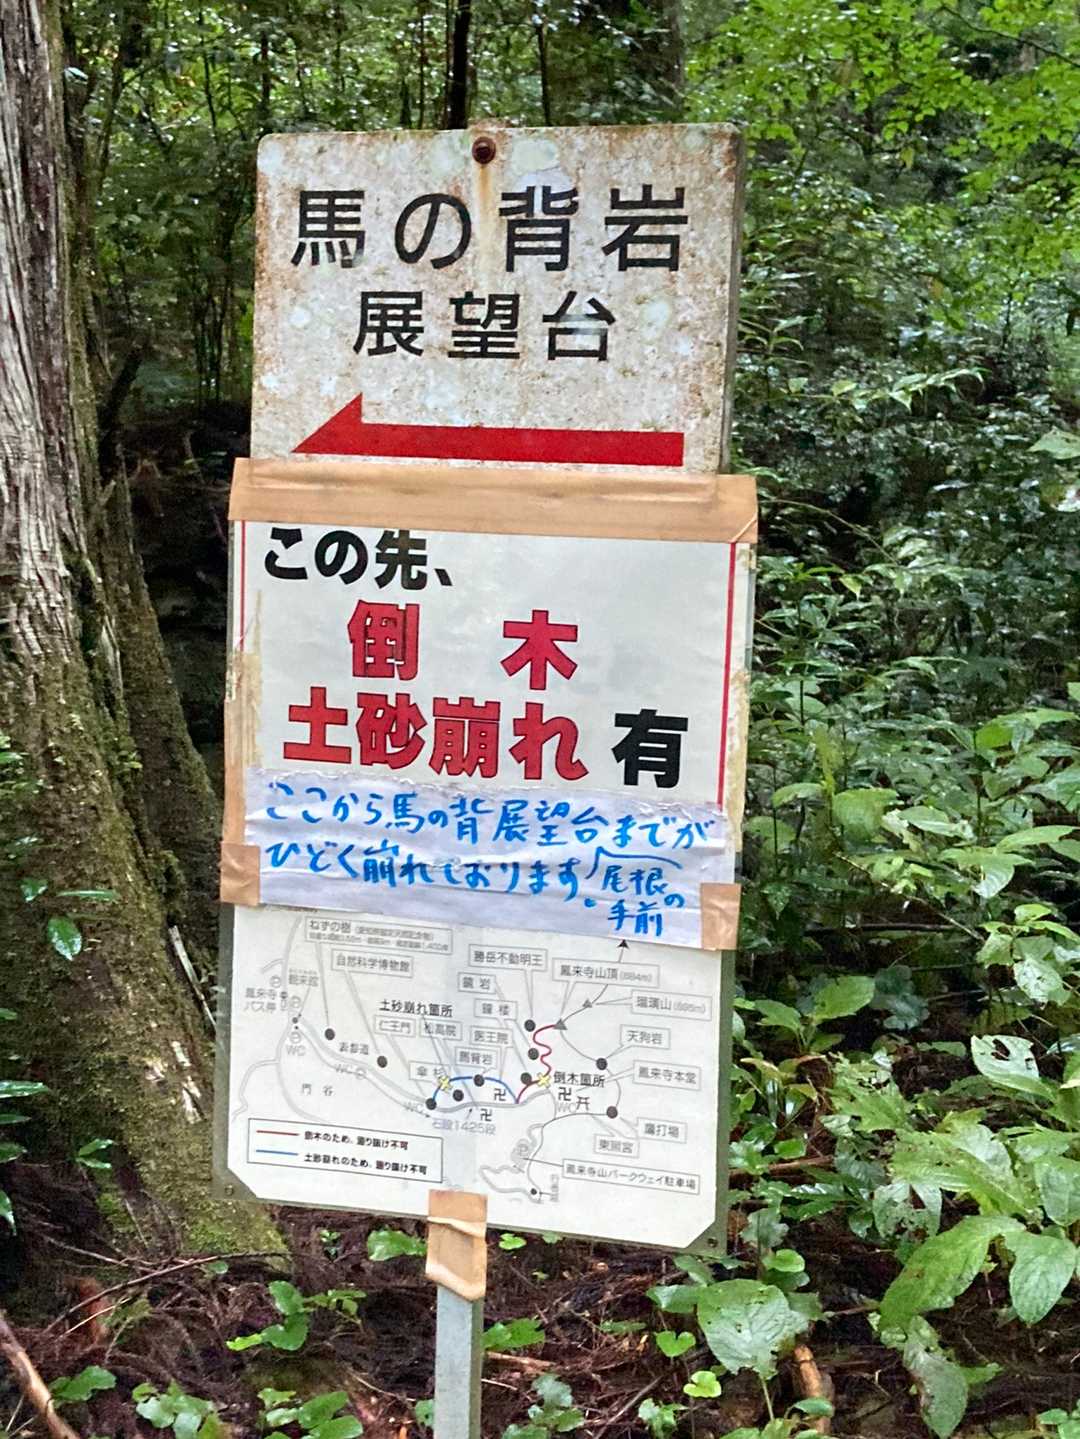 馬の背岩
展望台
この先、
倒 木
土砂崩れ 有
ここから馬の背展望台までが
ひどく崩れております。
尾根の
手前
ねずの樹
自然科学博物館
勝岳不動明王
鳳来寺山頂(684m)
瑠璃山(695m)
鏡岩
鐘楼
土砂崩れ箇所
仁王門
松高院
医王院
天狗岩
鳳来寺
バス停
WC
表参道
WC
馬背岩
傘杉
倒木箇所
鳳来寺本堂
門谷
WC
卍
卍
卍
WC
石段1425段
鷹打場
東照宮
鳳来寺山パークウェイ駐車場
倒木のため、通り抜け不可
土砂崩れのため、通り抜け不可